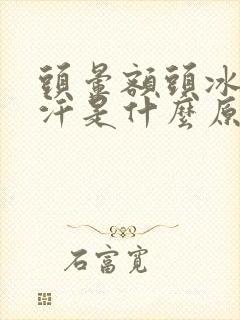 頭暈額頭冰
汗是什麼原
石富寬